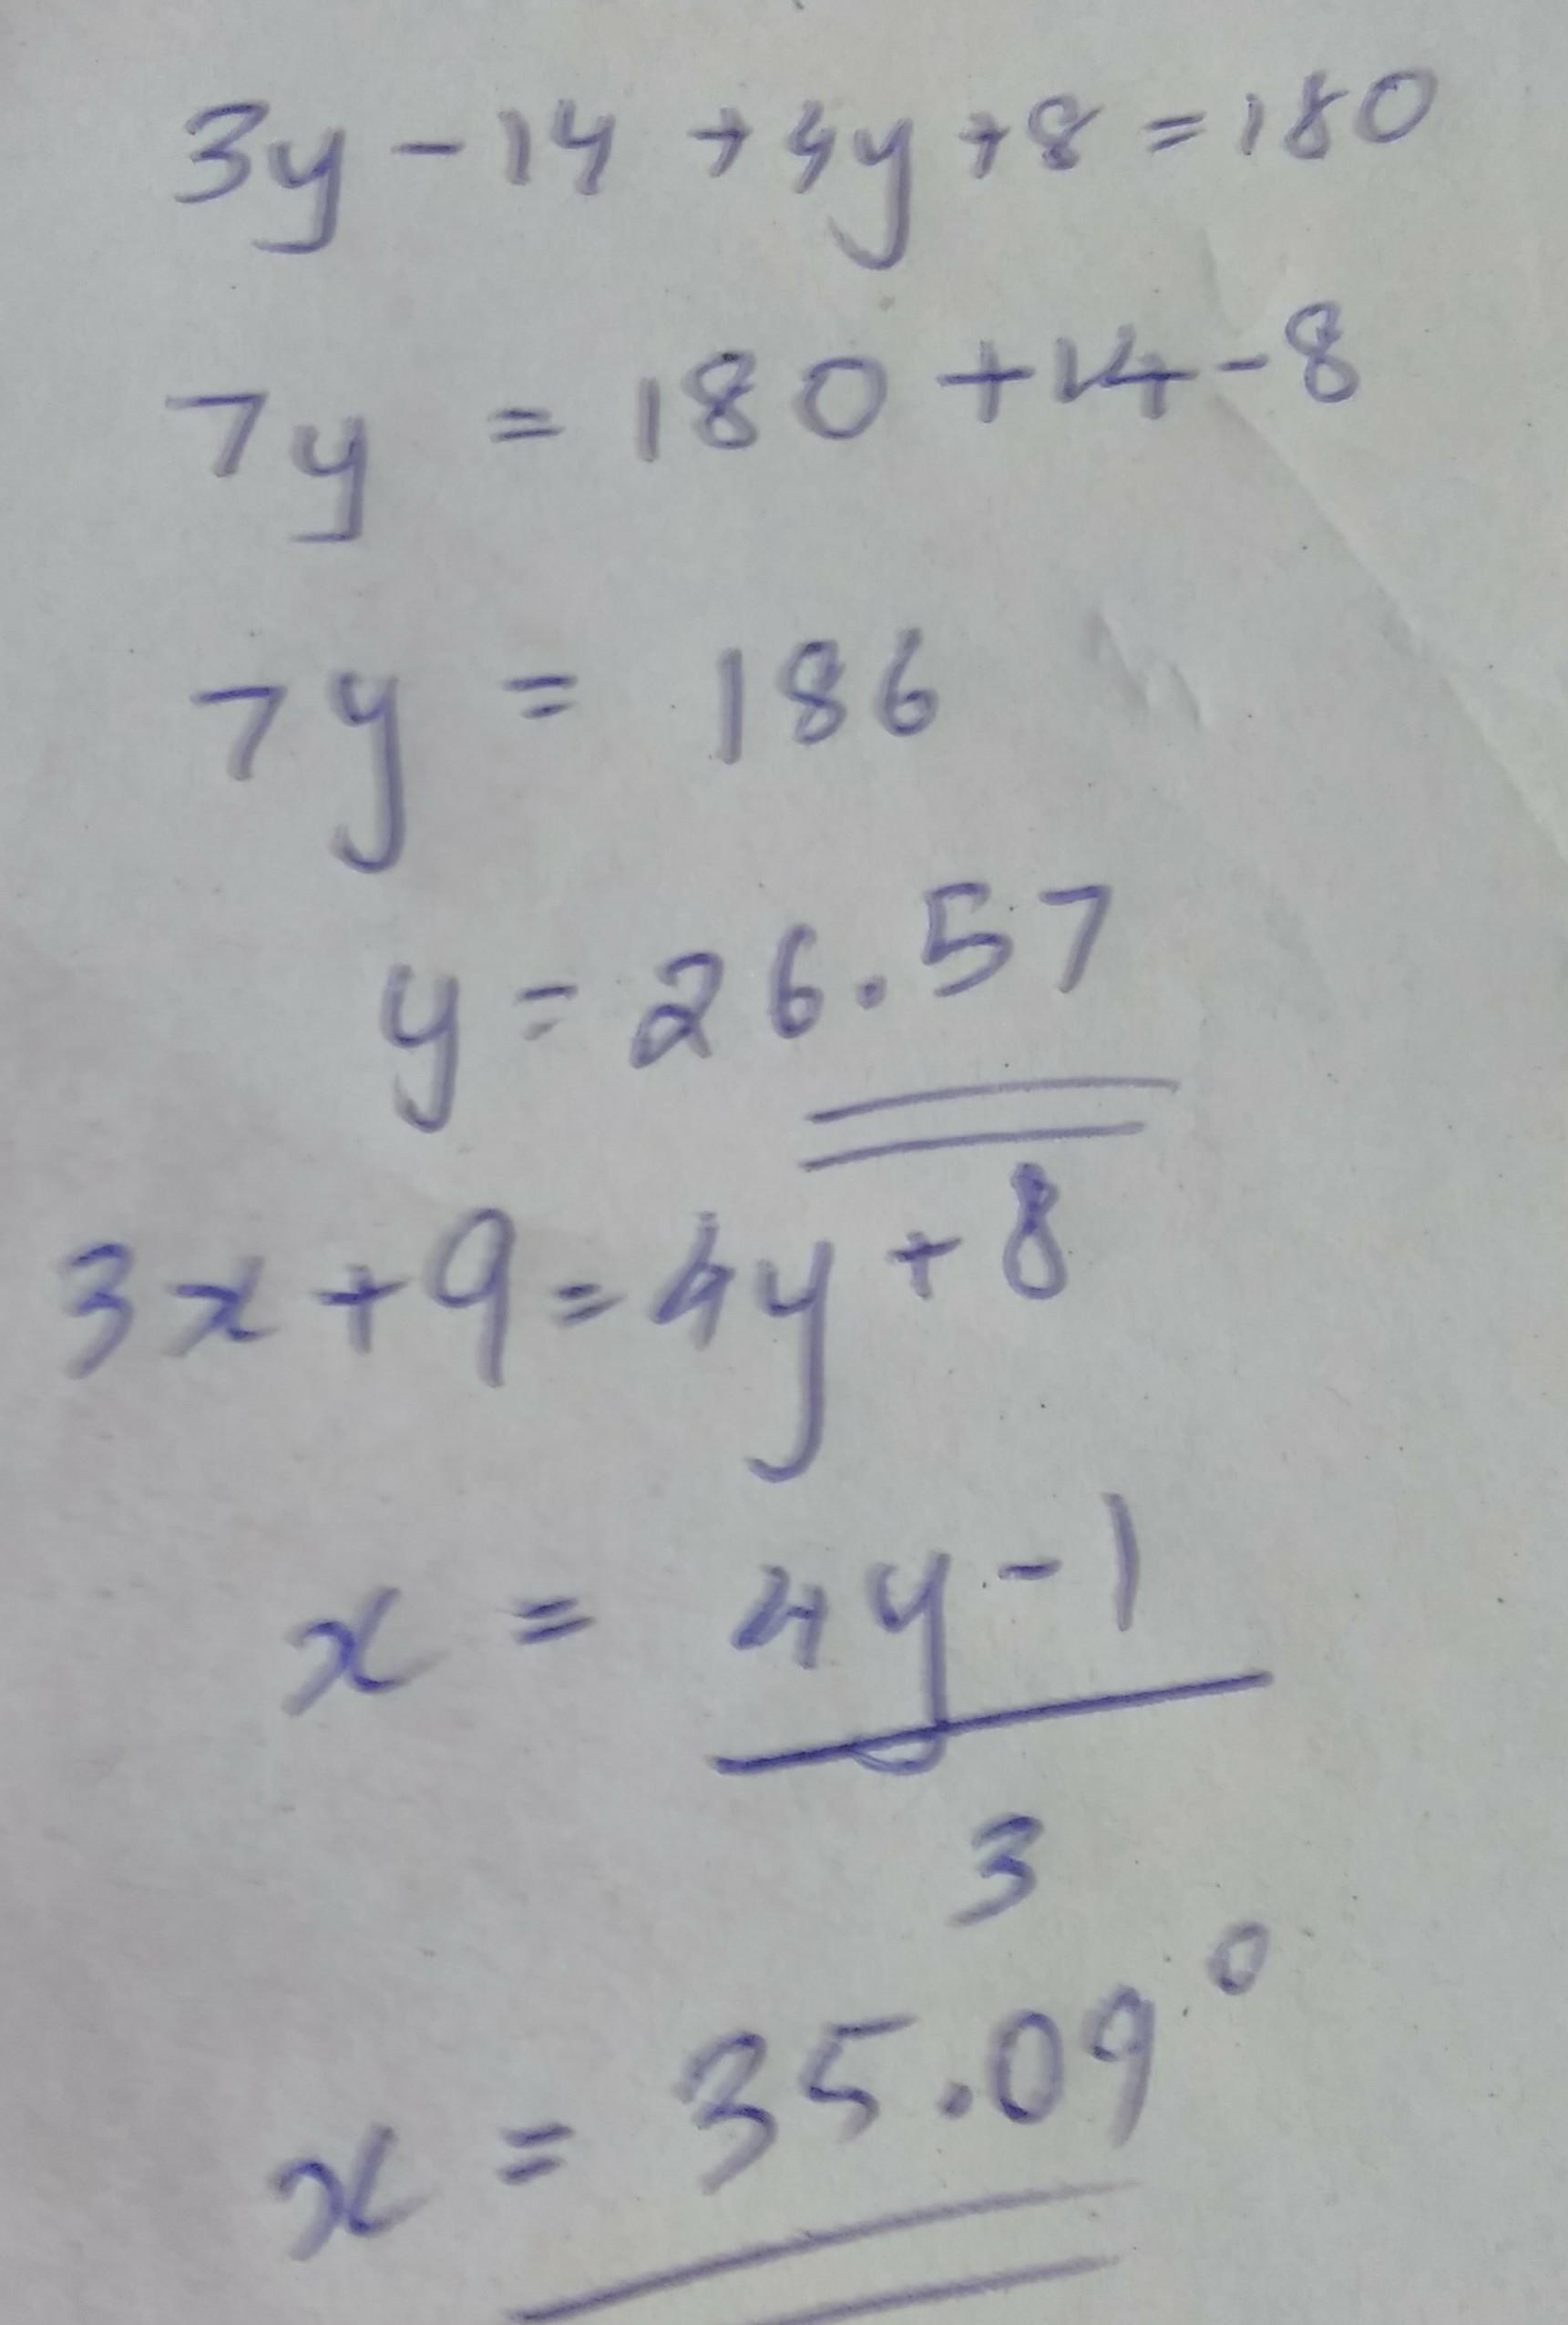 3y - 14 + 4y + 8 = 180
7y = 180 + 14 - 8
7y = 186
y = 26.57
3x + 9 = 4y + 8
x = 4y - 1
3
x = 35.09°